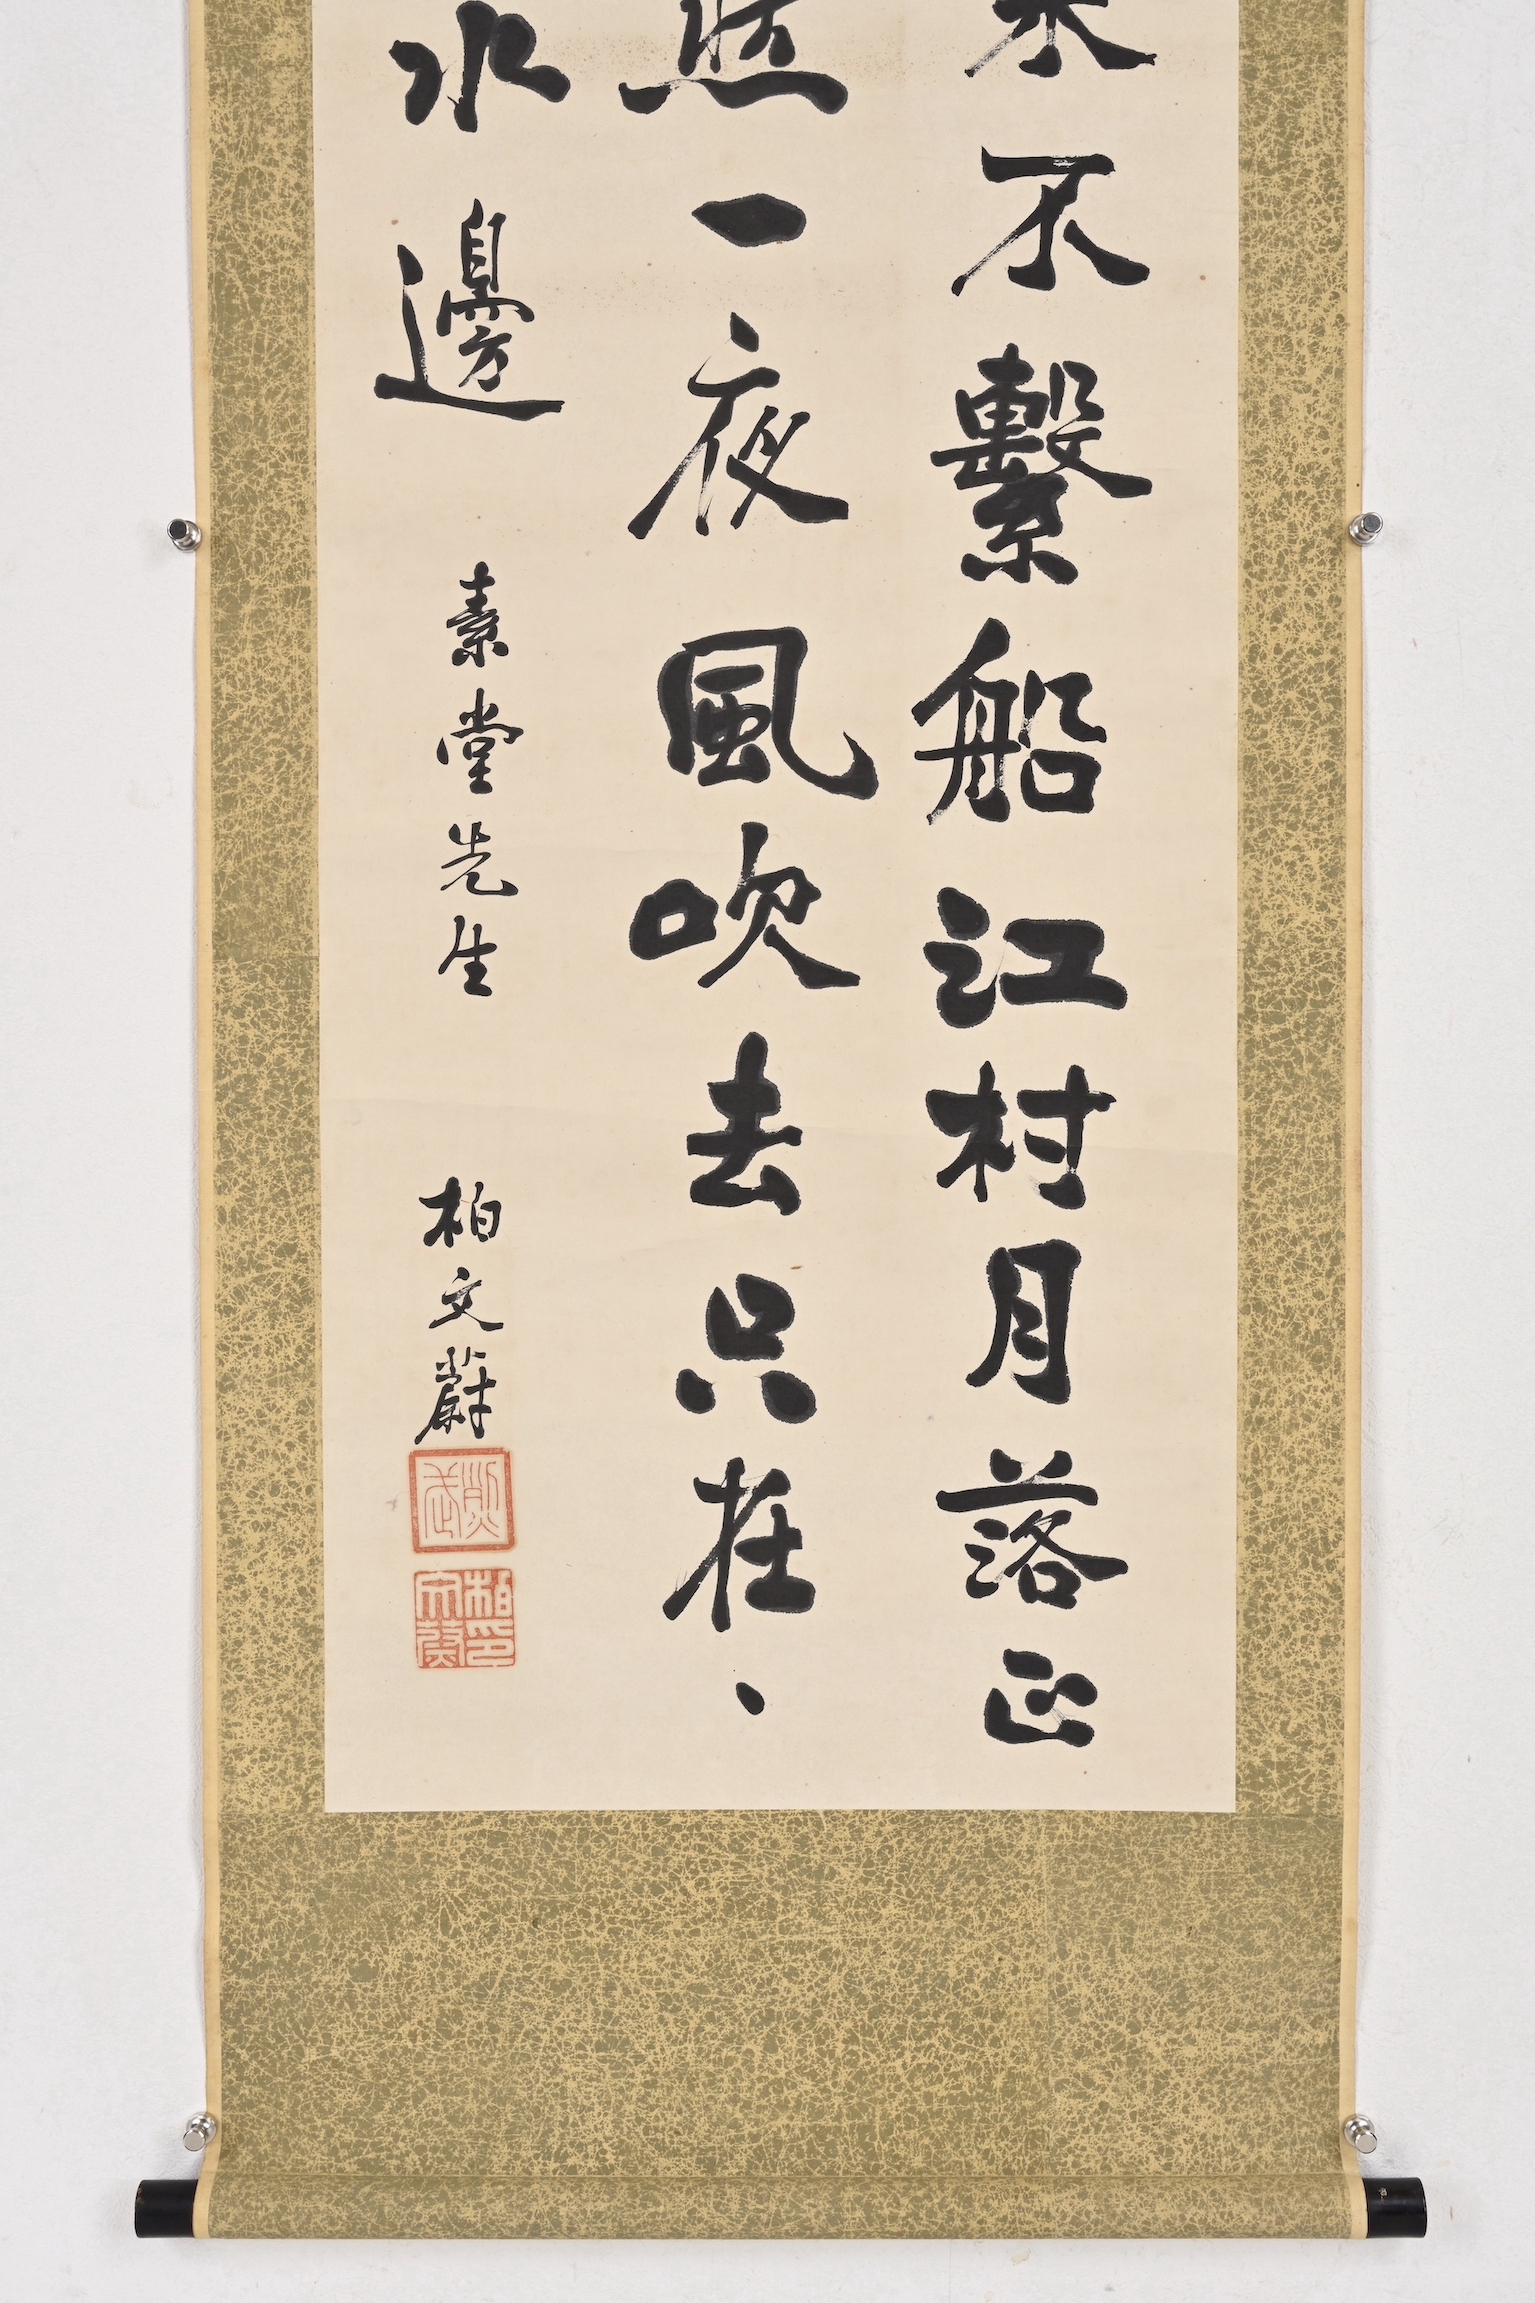 來不繫船江村月落正
然一夜風吹去只在、
水邊
素堂先生
柏文蔚
烈武
柏文蔚印